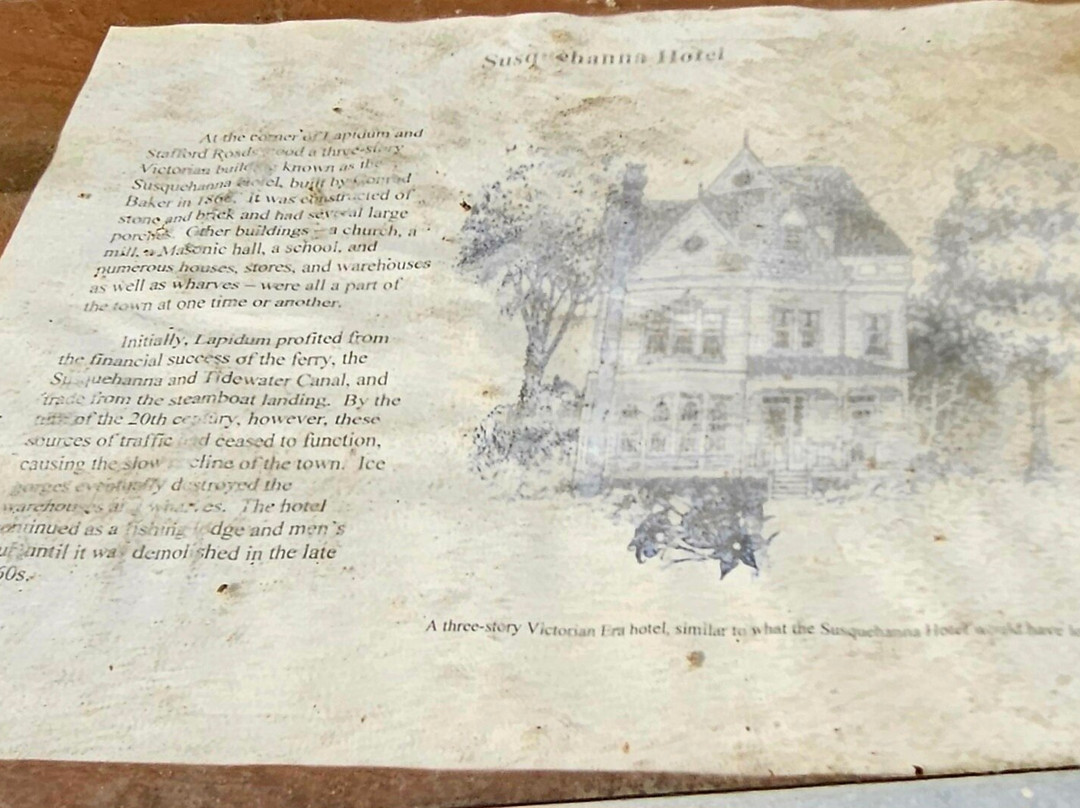 Susquehanna Hotel
At the corner of Lapidum and
Stafford Roads stood a three-story
Victorian building known as the
Susquehanna Hotel, built by Conrad
Baker in It was constructed of
stone and brick and had several large
porches. Other buildings – a church, a
mill, a Masonic hall, a school, and
numerous houses, stores, and warehouses
as well as wharves – were all a part of
the town at one time or another.
Initially, Lapidum profited from
the financial success of the ferry, the
Susquehanna and Tidewater Canal, and
trade from the steamboat landing. By the
turn of the 20th century, however, these
sources of traffic had ceased to function,
causing the slow decline of the town. Ice
gorges eventually destroyed the
warehouses and wharves. The hotel
continued as a fishing lodge and men's
until it was demolished in the late
60s.
A three-story Victorian Era hotel, similar to what the Susquehanna Hotel would have